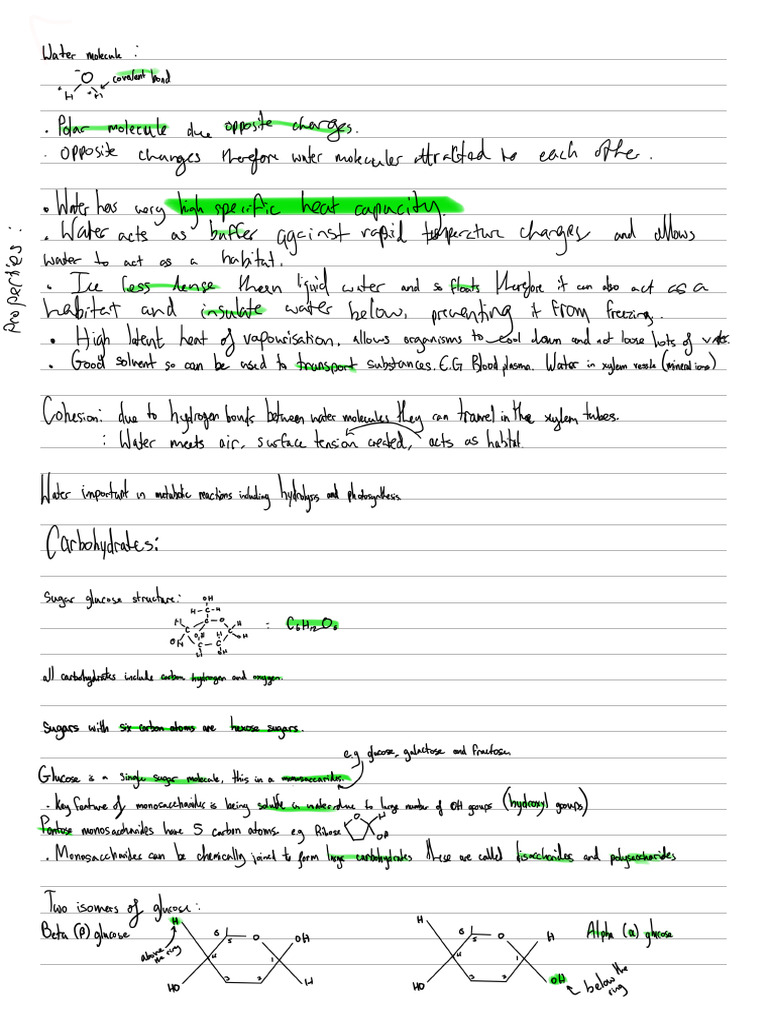 Water molecule :
O
covalent bond
H H
• Polar molecule due opposite charges.
• Opposite charges therefore water molecules attracted to each other.
Properties:
• Water has very high specific heat capacity
• Water acts as buffer against rapid temperature changes and allows
water to act as a habitat.
• Ice less dense then liquid water and so floats therefore it can also act as a
habitat and insulate water below, preventing it from freezing.
• High latent heat of vapourisation, allows organisms to cool down and not loose lots of water.
• Good solvent so can be used to transport substances. E.G Blood plasma. Water in xylem vessle (mineral ions)
Cohesion: due to hydrogen bonds between water molecules they can travel in the xylem tubes.
: Water meets air, surface tension created, acts as habitat
Water important in metabolic reactions including hydrolysis and photosynthesis
Carbohydrates:
Sugar glucose structure:
= C6H12O6
all carbohydrates include carbon hydrogen and oxygen.
Sugars with six carbon atoms are hexose sugars.
e.g glucose, galactose and fructose
Glucose is a single sugar molecule, this in a monosaccharides.
• Key feature of monosaccharides is being soluble in water due to large number of OH groups (hydroxyl groups)
Pentose monosaccharides have 5 carbon atoms. e.g Ribose
O H
OH
• Monosaccharides can be chemically joined to form large carbohydrates these are called disaccharides and polysaccharides
Two isomers of glucose :
Beta (β) glucose
above the ring
H 6 5 O OH
4 1
HO 3 2 H
H 6 5 O H
4 1
HO 3 2 OH
Alpha (α) glucose
below the ring